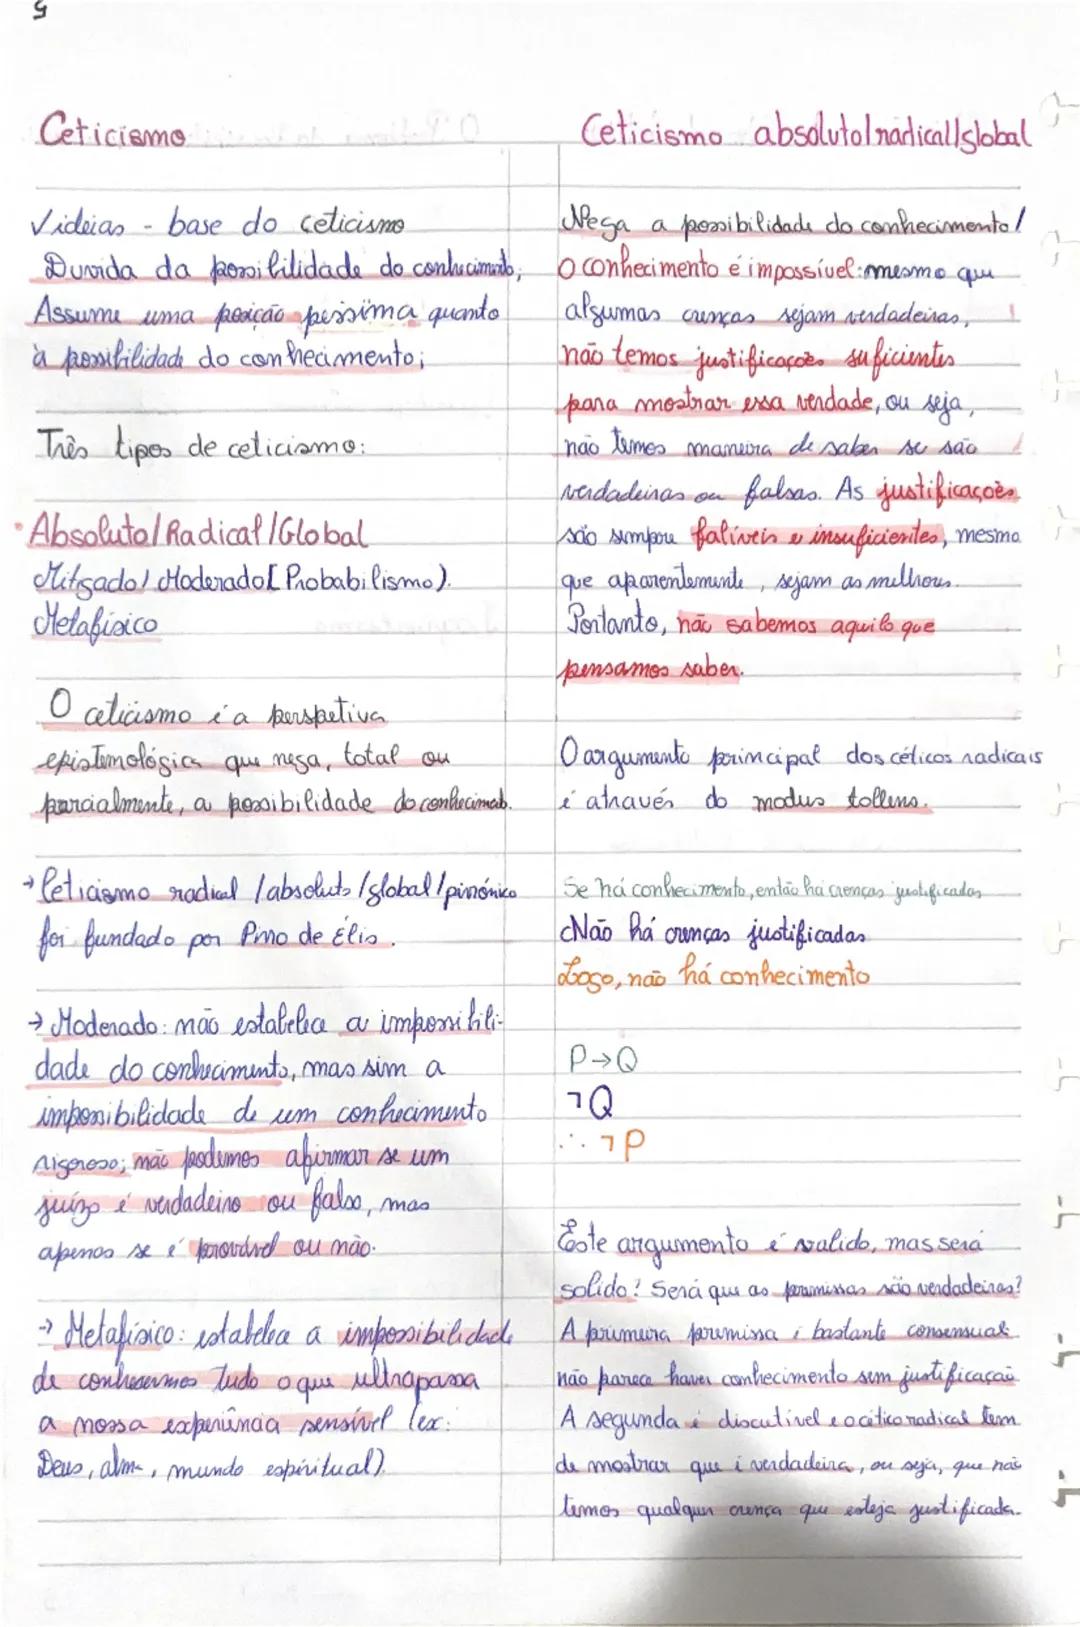 5
Ceticismo
√ideias - base do ceticismo
Duvida da possibilidade do conhecimento;
Assume uma posição pessima quanto
à possibilidade do conhecimento;
Três tipos de ceticismo:
• Absoluto/Radical/Global
Mitigado/Moderado[Probabilismo).
Metafísico
O ceticismo é a perspetiva
epistemológica que nega, total ou
parcialmente, a possibilidade do conhecimento.
→ Ceticismo radical/absoluto/global/pirrónico
foi fundado por Pirro de Élis.
→ Moderado: não estabelece a impossibili-
dade do conhecimento, mas sim a
impossibilidade de um conhecimento
rigoroso; não podemos afirmar se um
juízo é verdadeiro ou falso, mas
apenas se é provável ou não.
→ Metafísico: estabelece a impossibilidade
de conhecermos tudo o que ultrapassa
a nossa experiência sensível (ex:
Deus, alma, mundo espiritual).
Ceticismo absoluto/radical/global
Nega a possibilidade do conhecimento/
O conhecimento é impossível: mesmo que
algumas crenças sejam verdadeiras,
não temos justificações suficientes
para mostrar essa verdade, ou seja,
não temos maneira de saber se são
verdadeiras ou falsas. As justificações
são sempre falíveis e insuficientes, mesmo
que aparentemente, sejam as melhores.
Portanto, não sabemos aquilo que
pensamos saber.
O argumento principal dos céticos radicais
é através do modus tollens.
Se há conhecimento, então há crenças justificadas
Não há crenças justificadas
Logo, não há conhecimento
P→Q
¬Q
∴ ¬P
Este argumento é valido, mas será
solido? Será que as premissas são verdadeiras?
A primeira premissa é bastante consensual
não parece haver conhecimento sem justificação
A segunda é discutível e o cético radical tem
de mostrar que é verdadeira, ou seja, que não
temos qualquer crença que esteja justificada.